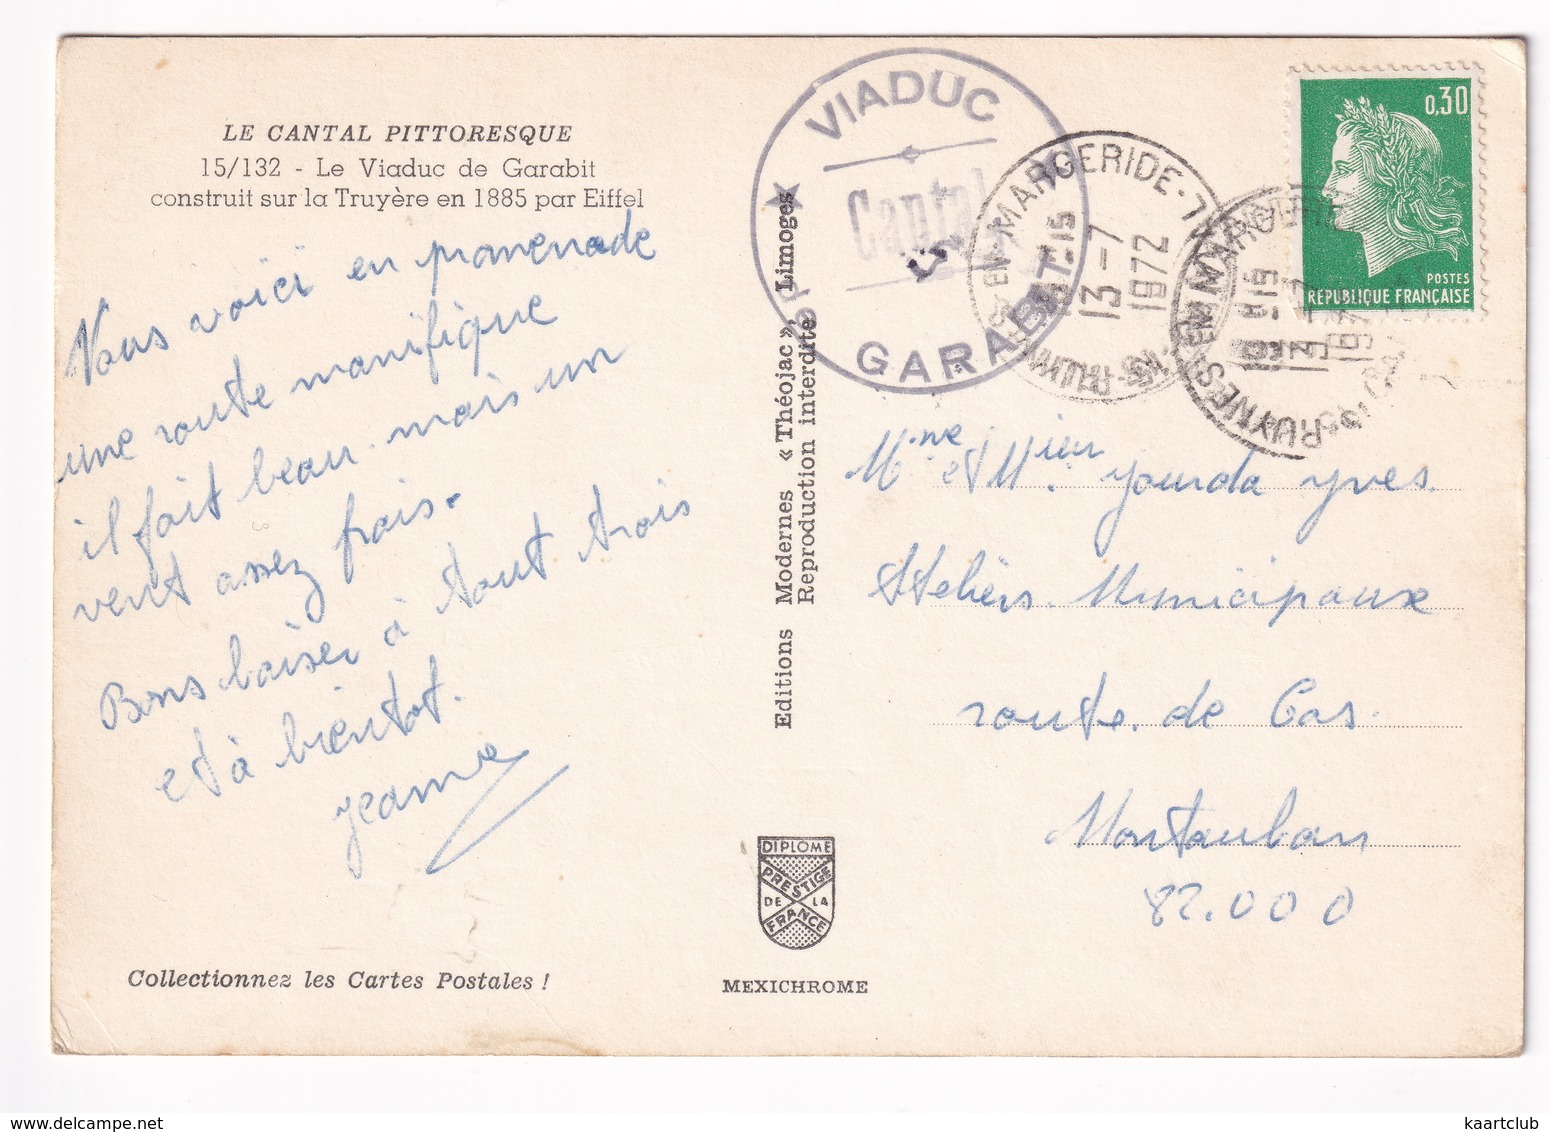 LE CANTAL PITTORESQUE
15/132 - Le Viaduc de Garabit
construit sur la Truyère en 1885 par Eiffel
Vous voici en promenade
une route manifique
il fait beau mais un
vent assez frais.
Bons baiser à tout trois
et à bientot.
Jeanne
Collectionnez les Cartes Postales !
Editions Modernes « Théojac » Limoges
Reproduction interdite
DIPLOME
PRESTIGE
DE LA
FRANCE
MEXICHROME
VIADUC
Cantal
GARABIT
EN-MARGERIDE
13-7
1972
RUYNES EN MARGERIDE
0,30
POSTES
REPUBLIQUE FRANÇAISE
Mme et Mr. Jourda Yves
Ateliers Municipaux
route de Cos.
Montauban
82.000
delcampe.net
kaartclub